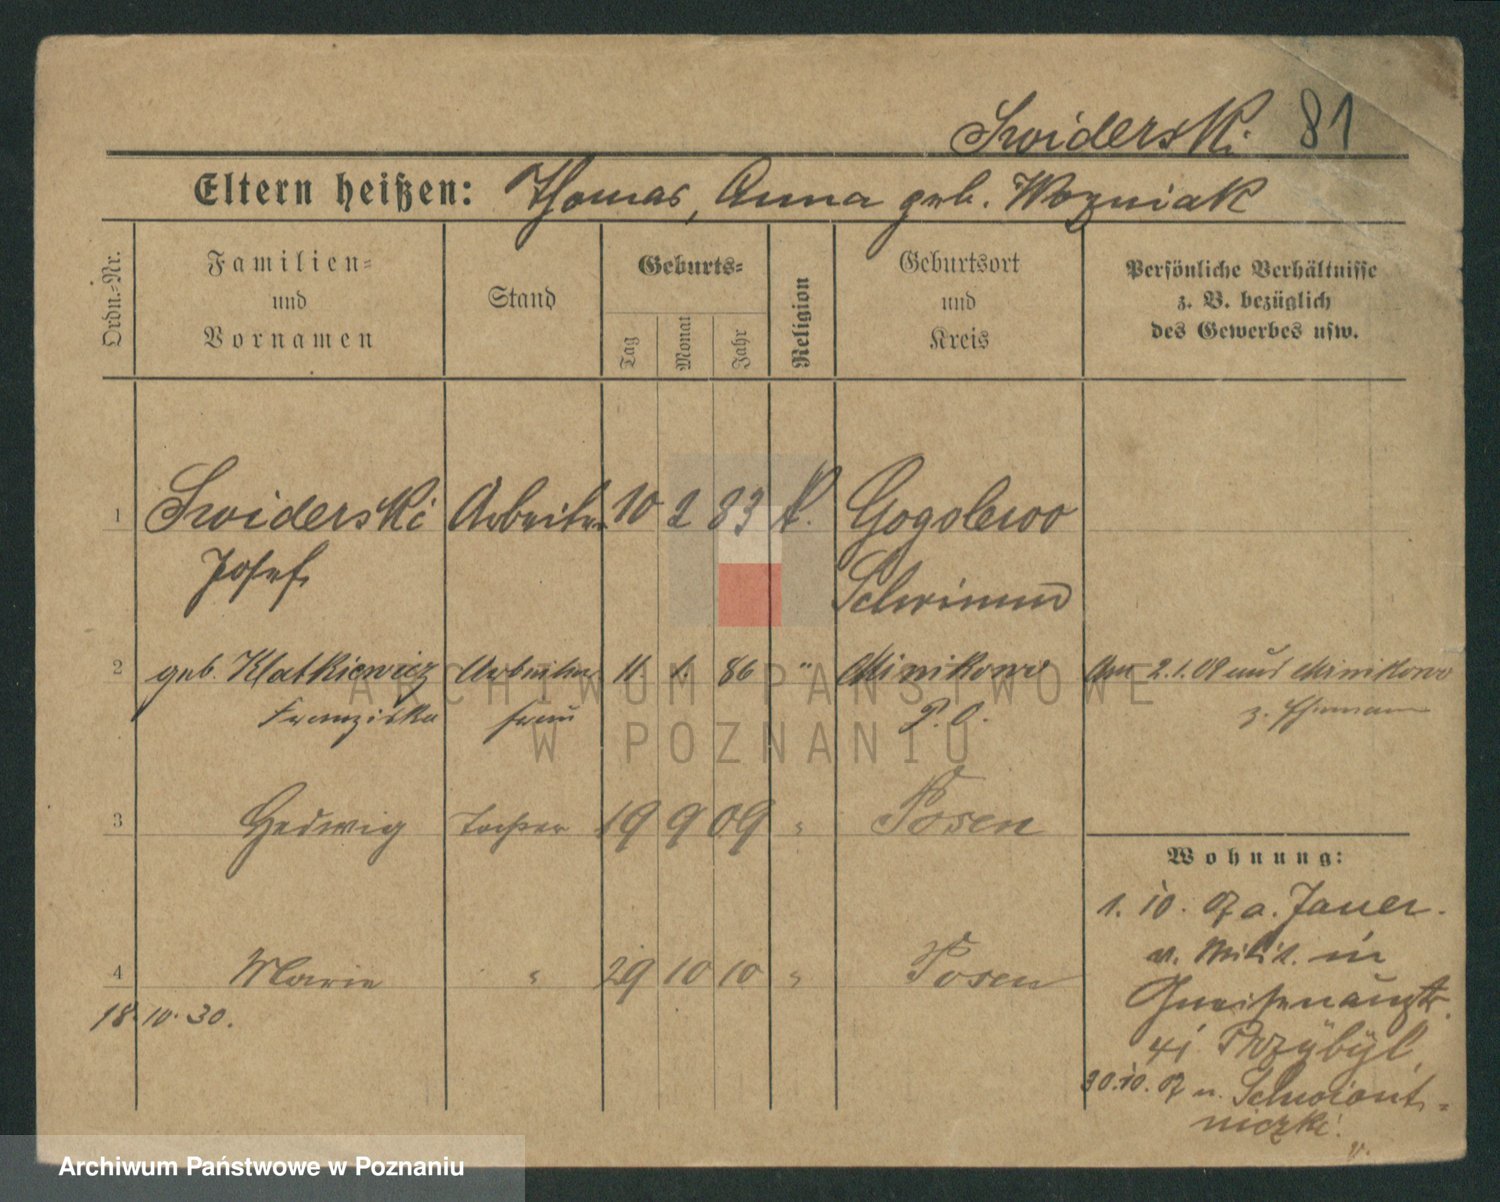 Swiderski 81
Eltern heißen: Thomas, Anna geb. Wozniak
Ordn.-Nr.
Familien-
und
Vornamen
Stand
Geburts-
Tag
Monat
Jahr
Religion
Geburtsort
und
Kreis
Persönliche Verhältnisse
z. B. bezüglich
des Gewerbes usw.
1 Swiderski Arbeiter 10 2 83 k. Gogolewo
Josef Schrimm
2 geb. Klatkiewicz Arbeiter 11. 1. 86 " Minikowo Am 2.1.08 aus Minikowo
Franziska frau P. O. z. Ehemann
3 Hedwig Tochter 19 9 09 " Posen
Wohnung:
1. 10. 07 a. Jauer
v. Milit. in
Gneisenaustr.
41 Przybyl
4 Marie " 29 10 10 " Posen
18.10.30.
30.10.07 n. Schwiont-
niczki.
ARCHIWUM PAŃSTWOWE
W POZNANIU
Archiwum Państwowe w Poznaniu